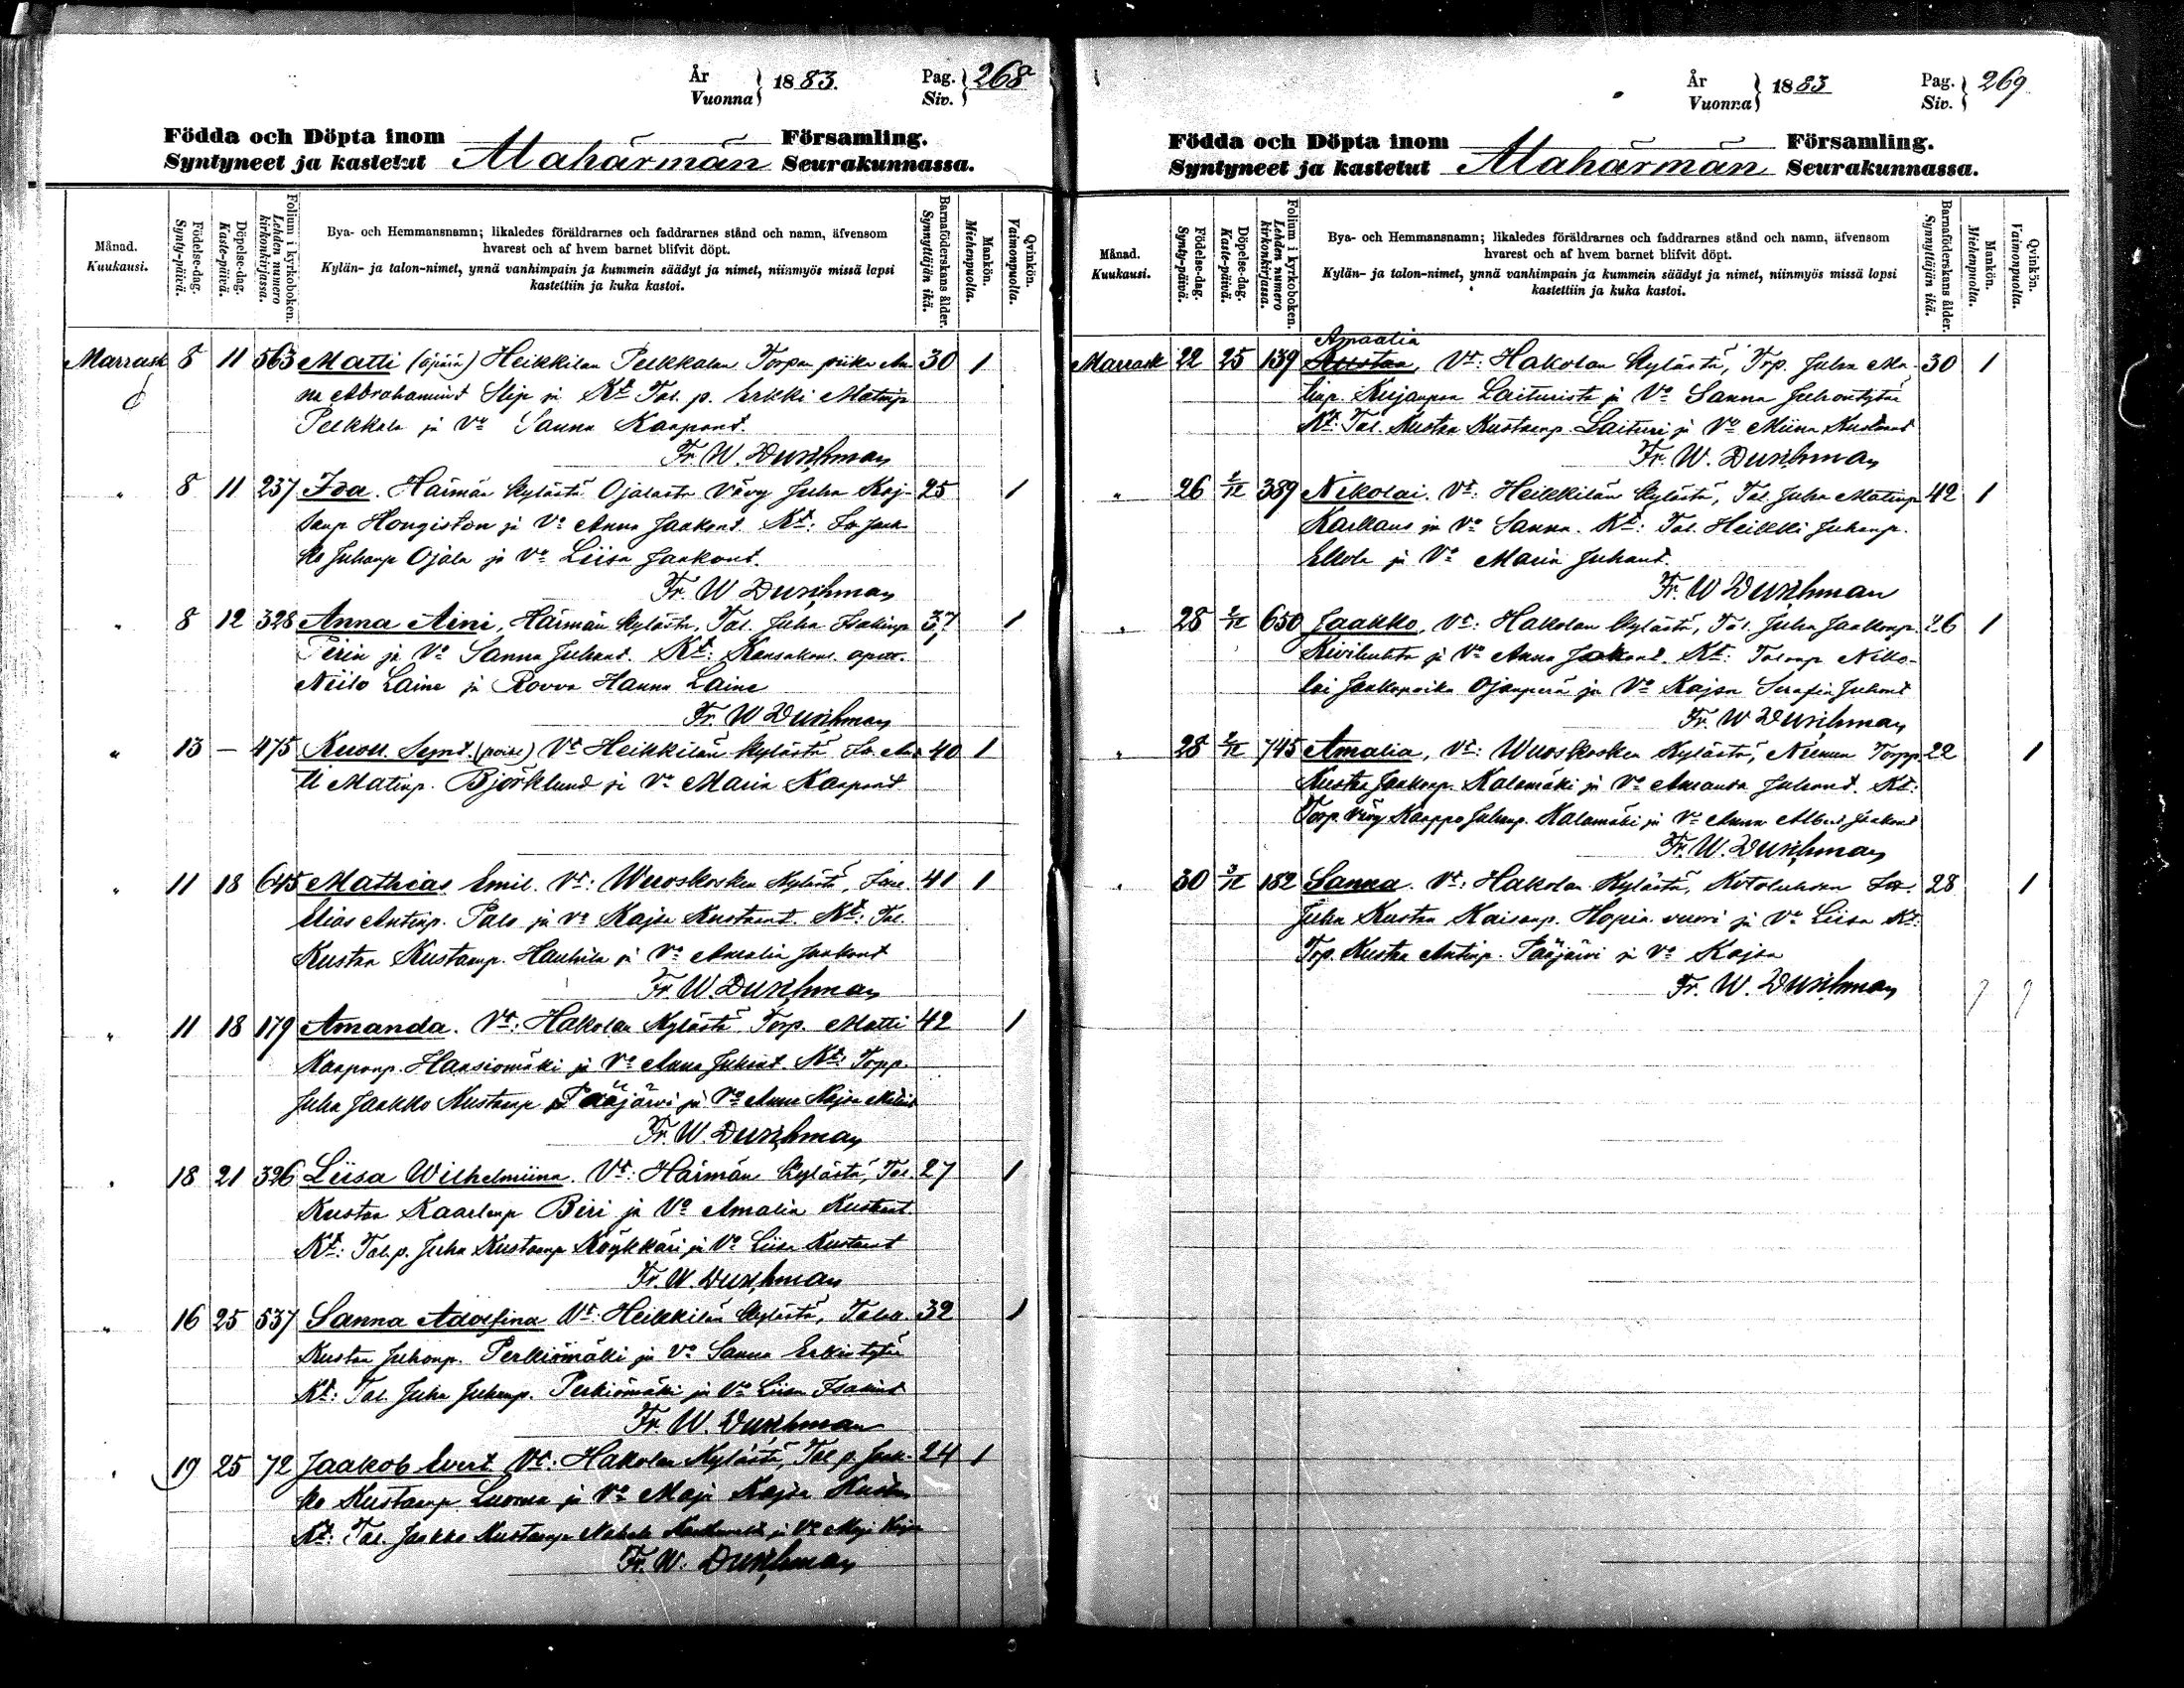 År
Vuonna } 1883.
Pag.
Siv. } 268
Födda och Döpta inom Alahärmän Församling.
Syntyneet ja kastetut Seurakunnassa.
Månad.
Kuukausi.
Födelse-dag.
Synty-päivä.
Döpelse-dag.
Kaste-päivä.
Folium i kyrkoboken.
Lehden numero kirkonkirjassa.
Bya- och Hemmansnamn; likaledes föräldrarnes och faddrarnes stånd och namn, äfvensom
hvarest och af hvem barnet blifvit döpt.
Kylän- ja talon-nimet, ynnä vanhimpain ja kummein säädyt ja nimet, niinmyös missä lapsi
kastettiin ja kuka kastoi.
Barnaföderskans ålder.
Synnyttäjän ikä.
Mankön.
Miehenpuolta.
Qvinkön.
Vaimonpuolta.
Marrask 8 11 563 Matti (öpärä) Heikkilän Pelkkalan Torpan piika An- 30 1
na Abrahamint Slip ja Kt Tal. p. Erkki Matinp
Pelkkala ja Vo Sanna Kaapont.
Fr. W. Durchman
" 8 11 237 Ida. Härmän kylästä Ojalasta Vävy Juha Kaj- 25 1
sanp Hongiston ja Vo Anna Jaakont. Kt: Lo Jaak-
ko Juhanp Ojala ja Vo Liisa Jaakont.
Fr. W Durchman
" 8 12 328 Anna Aini, Härmän kylästä, Tal. Juha Isakinp 37 1
Perin ja Vo Sanna Juhant. Kt: Kansakoul. opett.
Niilo Laine ja Rouva Hanna Laine
Fr. W Durchman
" 13 — 475 Kuoll. Synt. (poika) Vt Heikkilän kylästä Lo An- 40 1
ti Matinp. Björklund ja Vo Maria Kaapont
" 11 18 645 Mathias Emil. Vt: Wuoskosken kylästä, 41 1
Elias Antinp. Palo ja Vo Kajsa Kustaant. Kt: Tal.
Kustaa Kustaanp. Hauhila ja Vo Amalia Jaakont
Fr. W. Durchman
" 11 18 179 Amanda. Vt: Hakolan kylästä Torp. Matti 42 1
Kaaponp. Hansiomäki ja Vo Anna Juhant. Kt: Torpp.
Juha Jaakko Kustaanp Pääjärwi ja Vo Anna Kajsa Matint
Fr. W. Durchman
" 18 21 326 Liisa Wilhelmiina. Vt: Härmän kylästä, Tal. 27 1
Kustaa Kaarlonp Biri ja Vo Amalia Kustaant.
Kt: Tal.p. Juha Kustaanp Köykkäri ja Vo Liisa Kustaant
Fr. W. Durchman
" 16 25 537 Sanna Adolfina Vt: Heikkilän kylästä, Talon. 32 1
Kustaa Juhonp. Perkiömäki ja Vo Sanna Erkintytär
Kt: Tal. Juha Juhanp. Perkiömäki ja Vo Liisa Isakint
Fr. W. Durchman
" 19 25 72 Jaakob Evert Vt: Hakolan Kylästä, Tal p. Jaak- 24 1
ko Kustaanp Luoma ja Vo Maja Kajsa
Kt: Tal. Jaakko Kustaanp ja Vo Maja Kajsa
Fr. W. Durchman
År
Vuonna } 1883
Pag.
Siv. } 269
Födda och Döpta inom Alahärmän Församling.
Syntyneet ja kastetut Seurakunnassa.
Månad.
Kuukausi.
Födelse-dag.
Synty-päivä.
Döpelse-dag.
Kaste-päivä.
Folium i kyrkoboken.
Lehden numero kirkonkirjassa.
Bya- och Hemmansnamn; likaledes föräldrarnes och faddrarnes stånd och namn, äfvensom
hvarest och af hvem barnet blifvit döpt.
Kylän- ja talon-nimet, ynnä vanhimpain ja kummein säädyt ja nimet, niinmyös missä lapsi
kastettiin ja kuka kastoi.
Barnaföderskans ålder.
Synnyttäjän ikä.
Mankön.
Miehenpuolta.
Qvinkön.
Vaimonpuolta.
Amaalia
Marrask 22 25 139 Kustaa, Vt: Hakolan kylästä, Trp. Juha Ma- 30 1
tinp. Laiturista ja Vo Sanna Juhontytär
Kt: Tal. Kustaa Kustaanp. Laituri ja Vo Miina Kustaant
Fr. W. Durchman
" 26 2/12 389 Nikolai. Vt: Heikkilän kylästä, Tal. Juha Matinp 42 1
Karhaus ja Vo Sanna. Kt: Tal. Heikki Juhanp.
Ekola ja Vo Maria Juhant.
Fr. W Durchman
" 28 2/12 650 Jaakko, Vt: Hakolan kylästä, Tal. Juha Jaakonp. 26 1
Kiviluhta ja Vo Anna Jaakont. Kt: Talonp Niko-
lai Jaakonpoika Ojanperä ja Vo Kajsa Serafia Juhont
Fr. W Durchman
" 28 2/12 745 Amalia, Vt: Wuoskosken Kylästä, Niemen Torpp 22 1
Kustaa Jaakonp. Kalamäki ja Vo Amanda Juhant. Kt:
Torp. Vävy Kaappo Juhanp. Kalamäki ja Vo Anna Jaakont
Fr. W. Durchman
" 30 3/12 182 Sanna. Vt: Hakolan Kylästä, Kotoluhdan 28 1
Juha Kustaa Kaisanp. Hopia vuori ja Vo Liisa Kt:
Trp. Kustaa Antinp. Pääjärvi ja Vo Kajsa
Fr. W. Durchman